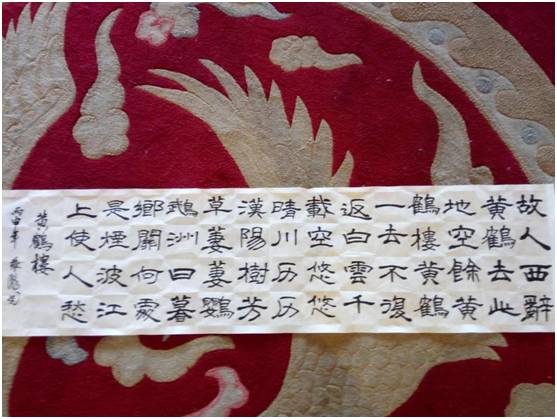 故人西辭
黄鶴去此
地空餘黄
鶴樓黄鶴
一去不復
返白雲千
載空悠悠
晴川历历
漢陽樹芳
草萋萋鸚
鵡洲日暮
鄉關何處
是煙波江
上使人愁
黄鶴樓
丙申年